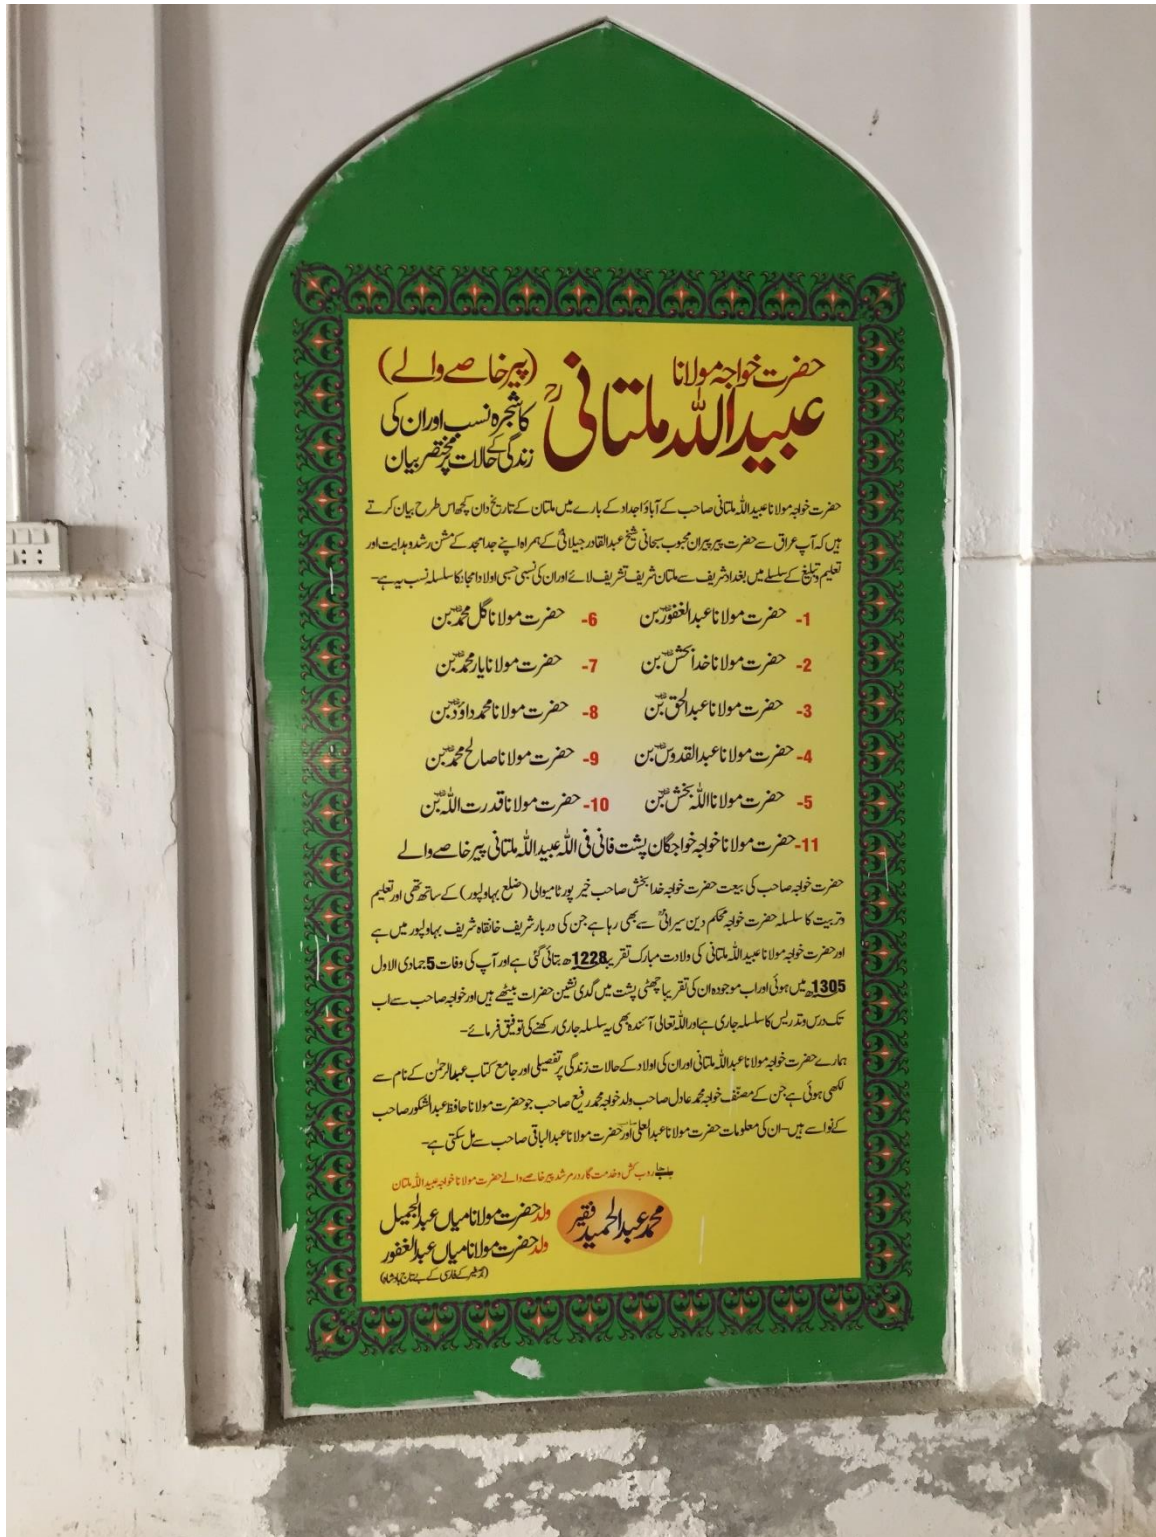 حضرت خواجہ مولانا
عبیداللہ ملتانیؒ
(پیر خاصے والے)
کا شجرہ نسب اور ان کی
زندگی کے حالات پر مختصر بیان
حضرت خواجہ مولانا عبیداللہ ملتانی صاحب کے آباؤ اجداد کے بارے میں ملتان کے تاریخ دان کچھ اس طرح بیان کرتے
ہیں کہ آپ عراق سے حضرت پیر پیران محبوب سبحانی شیخ عبدالقادر جیلانیؒ کے ہمراہ اپنے جد امجد کے مشن رشد و ہدایت اور
تعلیم و تبلیغ کے سلسلے میں بغداد شریف سے ملتان شریف تشریف لائے اور ان کی نسبی حسبی اولاد امجاد کا سلسلہ نسب یہ ہے-
1- حضرت مولانا عبدالغفورؒ بن
2- حضرت مولانا خدا بخشؒ بن
3- حضرت مولانا عبدالحقؒ بن
4- حضرت مولانا عبدالقدوسؒ بن
5- حضرت مولانا اللہ بخشؒ بن
6- حضرت مولانا گل محمدؒ بن
7- حضرت مولانا یار محمدؒ بن
8- حضرت مولانا محمد داؤدؒ بن
9- حضرت مولانا صالح محمدؒ بن
10- حضرت مولانا قدرت اللہؒ بن
11- حضرت مولانا خواجہ خواجگان پشت فانی فی اللہ عبیداللہ ملتانی پیر خاصے والے
حضرت خواجہ صاحب کی بیعت حضرت خواجہ خدا بخش صاحب خیر پور ٹامیوالی (ضلع بہاولپور) کے ساتھ تھی اور تعلیم
وتربیت کا سلسلہ حضرت خواجہ محکم دین سیرانیؒ سے بھی رہا ہے جن کی دربار شریف خانقاہ شریف بہاولپور میں ہے
اور حضرت خواجہ مولانا عبیداللہ ملتانی کی ولادت مبارک تقریبا 1228ھ بتائی گئی ہے اور آپ کی وفات 5 جمادی الاول
1305ھ میں ہوئی اور اب موجودہ ان کی تقریبا چھٹی پشت میں گدی نشین حضرات بیٹھے ہیں اور خواجہ صاحب سے اب
تک درس و تدریس کا سلسلہ جاری ہے اور اللہ تعالی آئندہ بھی یہ سلسلہ جاری رکھنے کی توفیق فرمائے-
ہمارے حضرت خواجہ مولانا عبداللہ ملتانی اور ان کی اولاد کے حالات زندگی پر تفصیلی اور جامع کتاب عبدالرحمٰن کے نام سے
لکھی ہوئی ہے جن کے مصنف خواجہ محمد عادل صاحب ولد خواجہ محمد رفیع صاحب جو حضرت مولانا حافظ عبدالشکور صاحب
کے نواسے ہیں- ان کی معلومات حضرت مولانا عبدالعلی اور حضرت مولانا عبدالباقی صاحب سے مل سکتی ہے-
روب کش و خدمت گار در مرشد پیر خاصے والے حضرت مولانا خواجہ عبیداللہ ملتان
فقیر محمد عبدالحمید
ولد حضرت مولانا میاں عبدالجمیل
ولد حضرت مولانا میاں عبدالغفور
کے فارسی کے بے تاج بادشاہ)